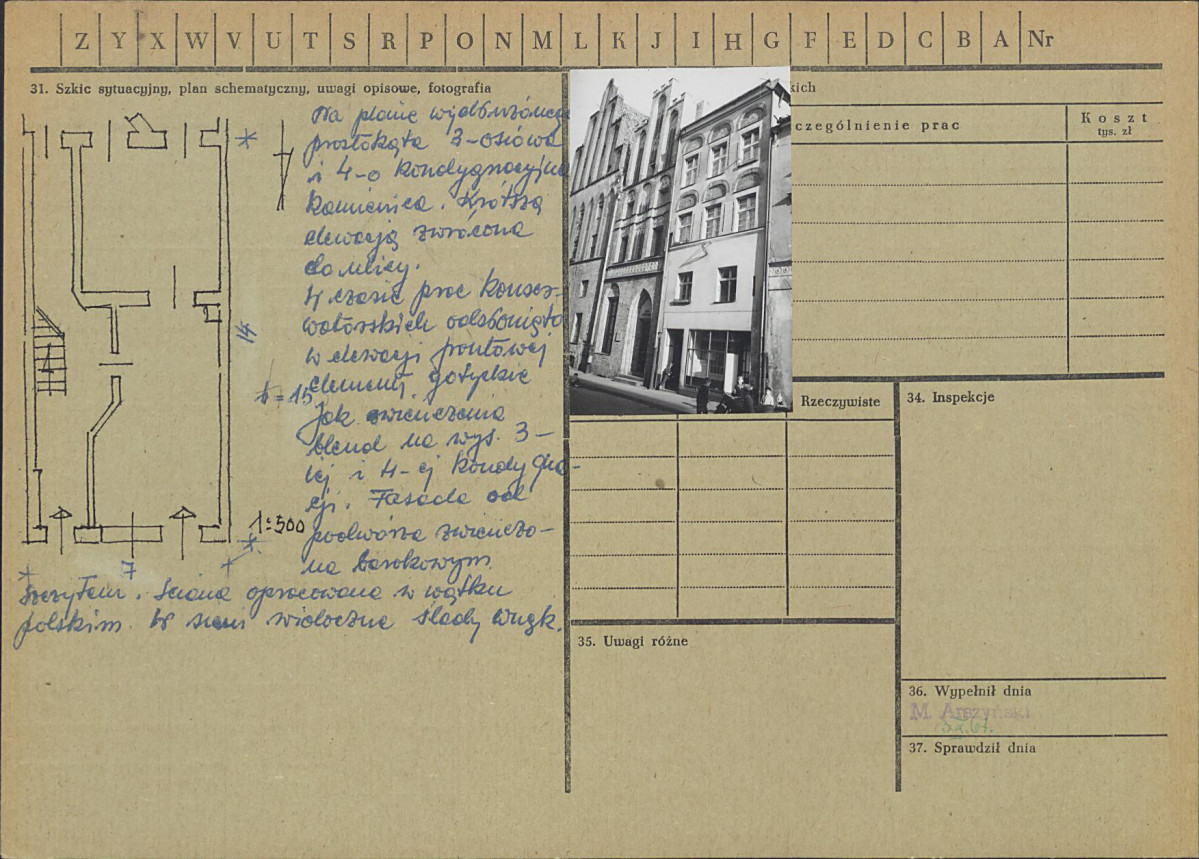 Z Y X W V U T S R P O N M L K J I H G F E D C B A Nr
31. Szkic sytuacyjny, plan schematyczny, uwagi opisowe, fotografia
Na planie wydłużonego
prostokąta 3-osiowa
i 4-o kondygnacyjna
kamienica. Krótszą
elewacją zwrócona
do ulicy.
W czasie prac konser-
watorskich odsłonięto
w elewacji frontowej
elementy gotyckie
jak zwieńczenia
blend na wys. 3-
ej i 4-ej kondygna-
cji. Fasada od
podwórza zwieńczo-
na barokowym
szczytem. Ściana opracowana w wątku
polskim. W sieni widoczne ślady wnęk.
14
= 15
1:500
7
kich
czególnienie prac
Koszt
tys. zł
Rzeczywiste
34. Inspekcje
35. Uwagi różne
36. Wypełnił dnia
M. Arszyński
37. Sprawdził dnia